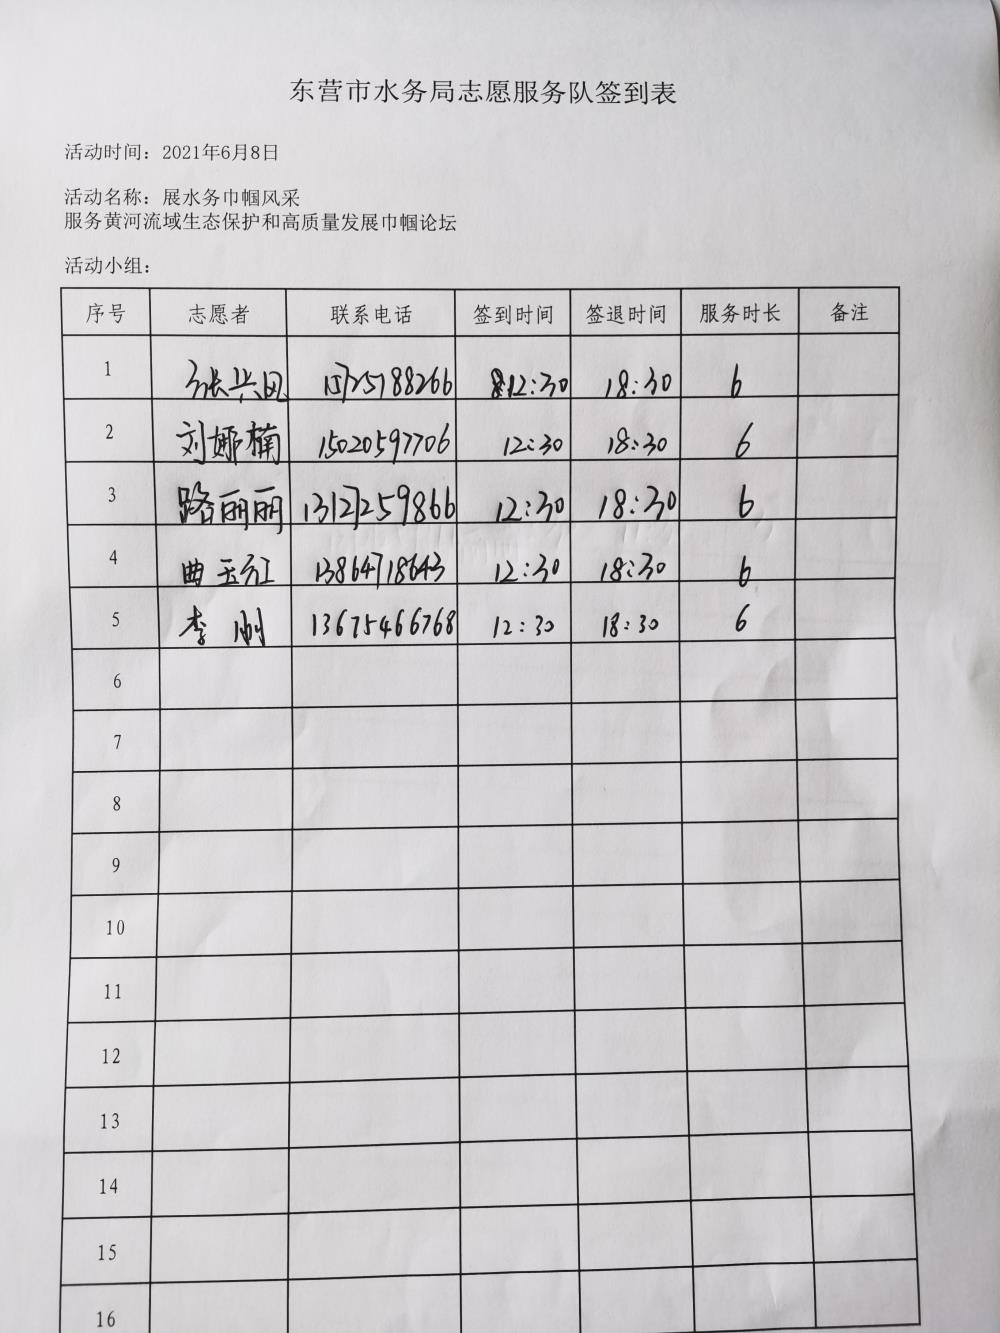 东营市水务局志愿服务队签到表
活动时间：2021年6月8日
活动名称：展水务巾帼风采
服务黄河流域生态保护和高质量发展巾帼论坛
活动小组：
序号 志愿者 联系电话 签到时间 签退时间 服务时长 备注
1 张兴凤 15725188266 12:30 18:30 6
2 刘娜楠 15020597706 12:30 18:30 6
3 路丽丽 13127259866 12:30 18:30 6
4 曲玉红 13864718643 12:30 18:30 6
5 李刚 13675466768 12:30 18:30 6
6
7
8
9
10
11
12
13
14
15
16